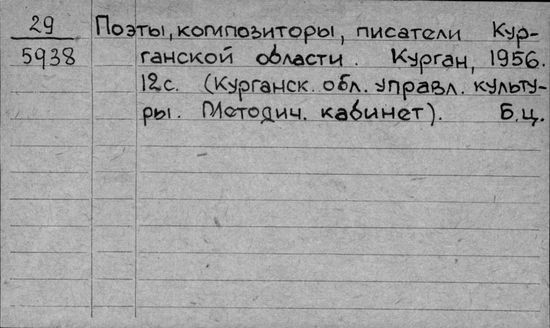 29 Поэты, композиторы, писатели Кур-
5938 ганской области. Курган, 1956.
12с. (Курганск. обл. управл. культу-
ры. Методич. кабинет). Б.ц.